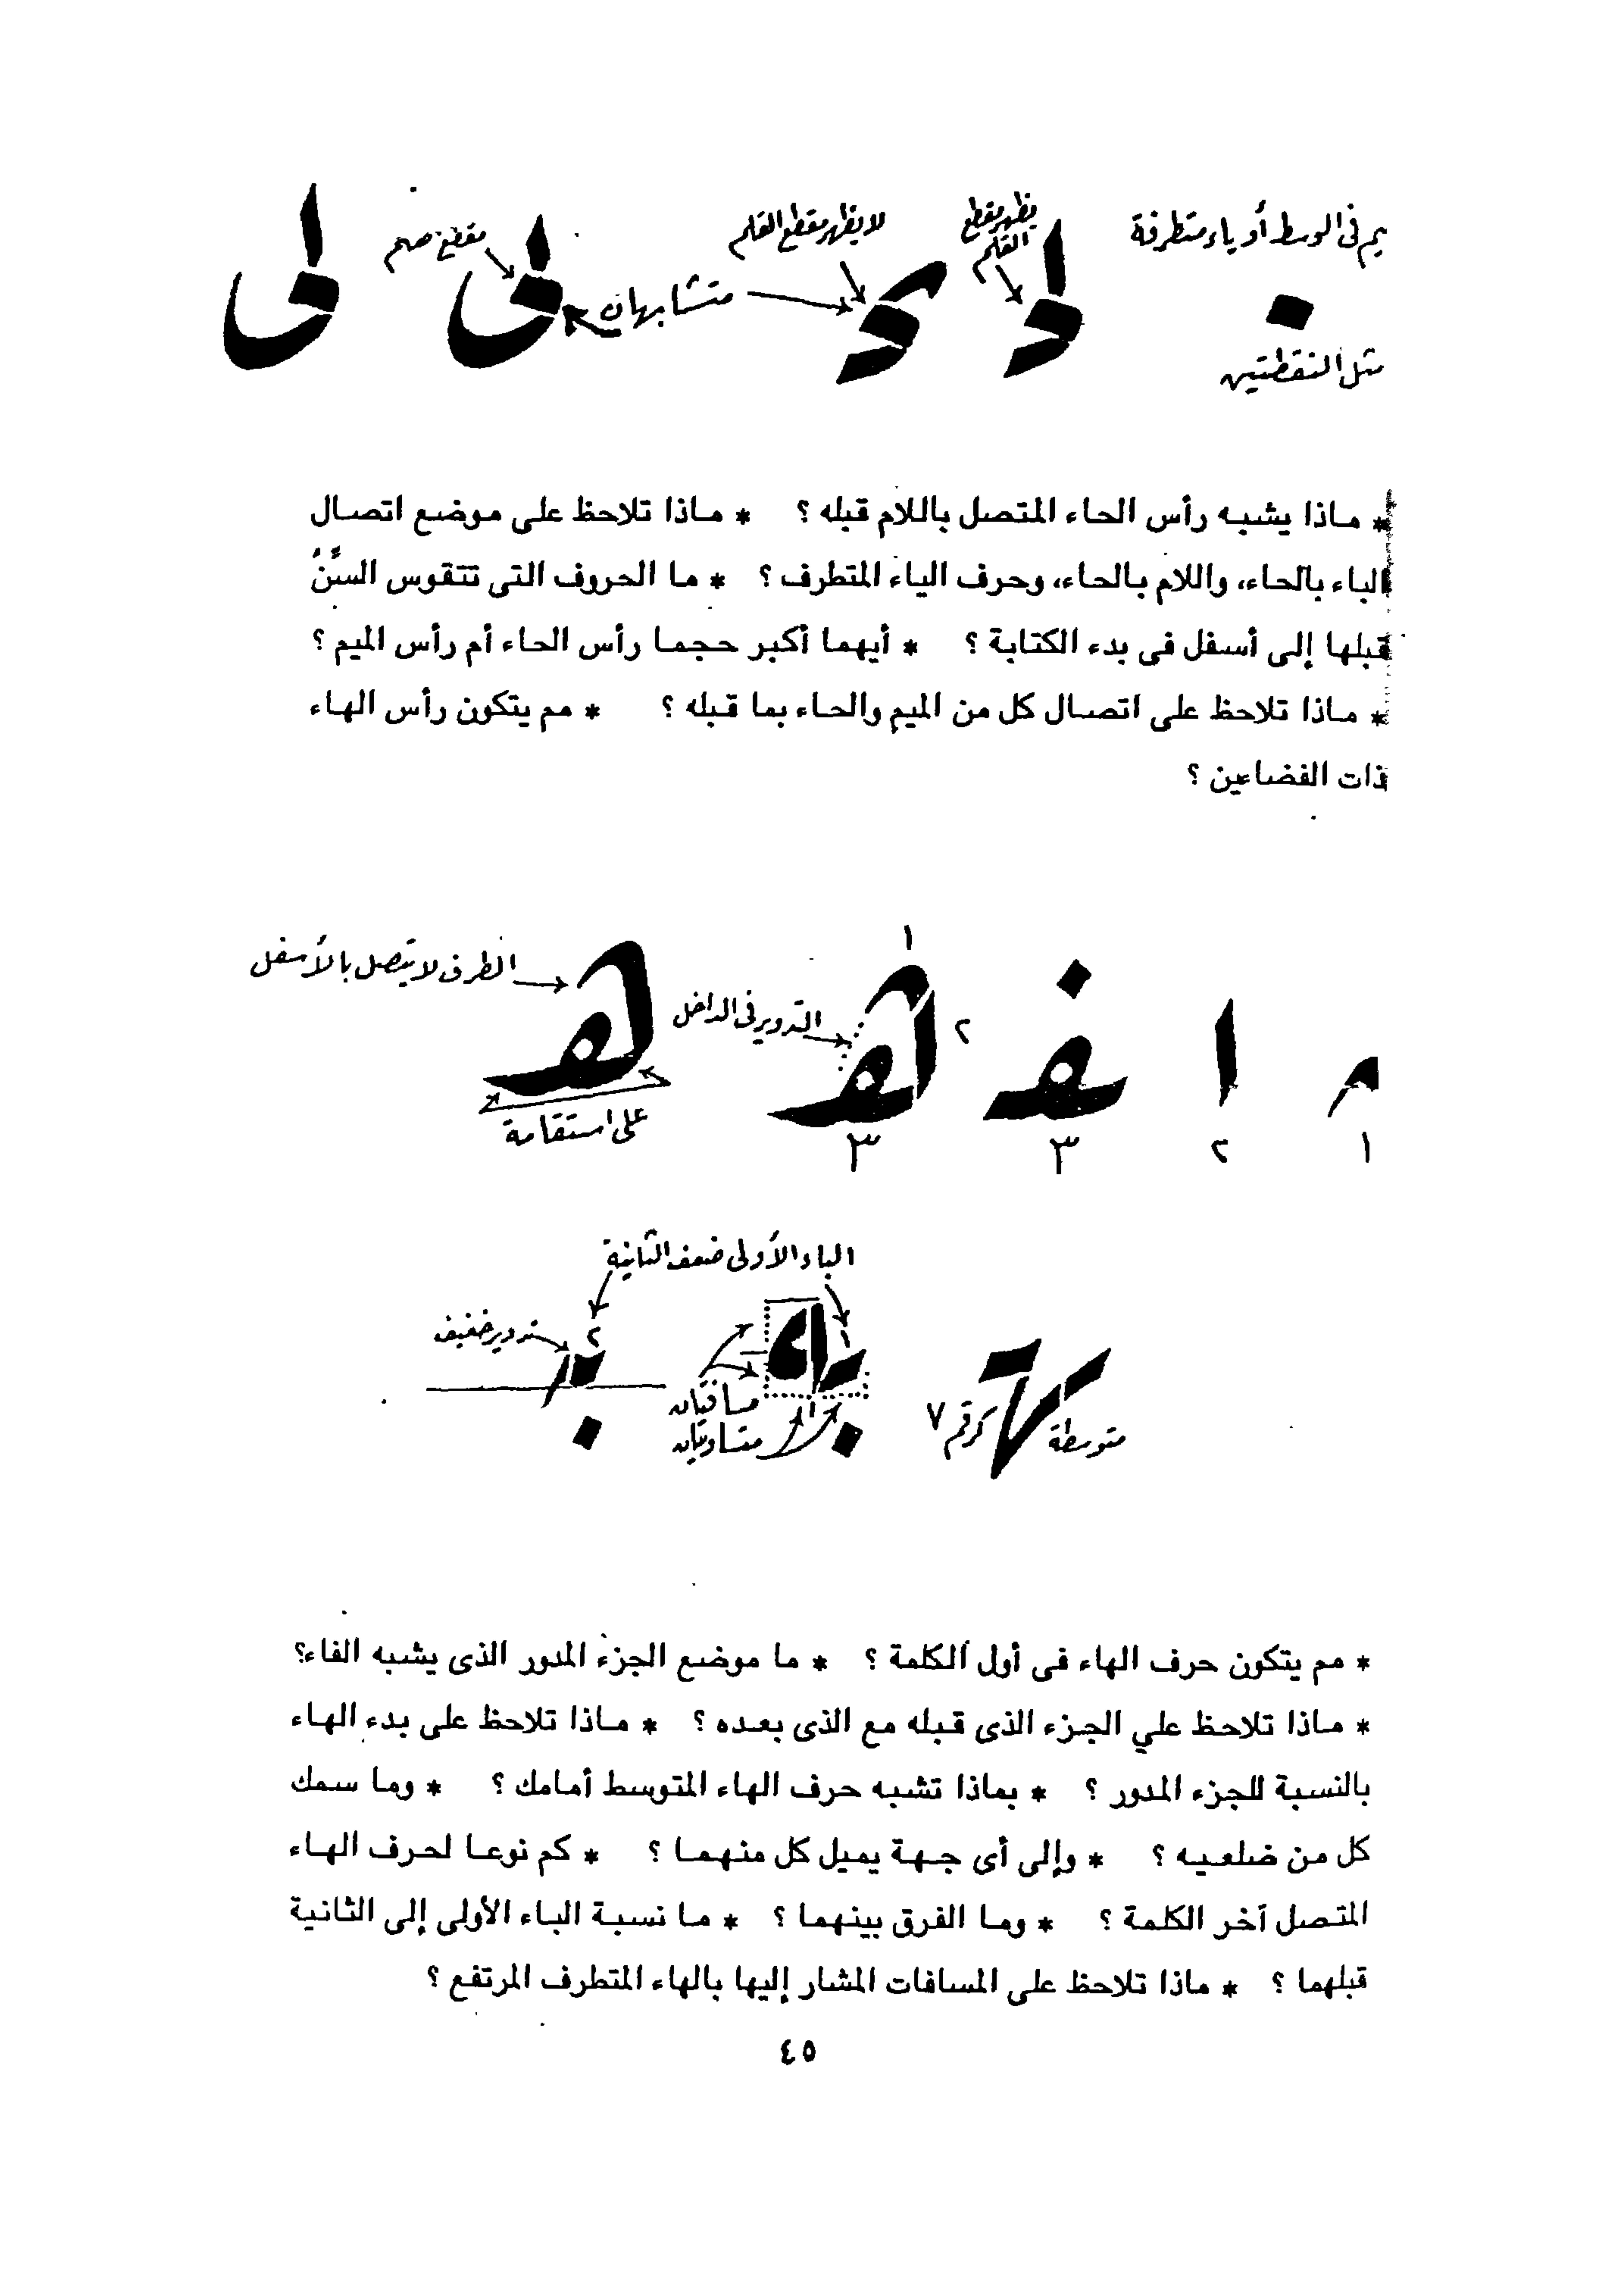 يم فى الوسط أو ياء متطرفة
يظهر مقطع
القلم
لا يظهر مقطع القلم
متشابهان
مثل النقطتين
* ماذا يشبه رأس الحاء المتصل باللام قبله ؟ * ماذا تلاحظ على موضع اتصال
الباء بالحاء، واللام بالحاء، وحرف الياء المتطرف ؟ * ما الحروف التى تتقوس السنُّ
قبلها إلى أسفل فى بدء الكتابة ؟ * أيهما أكبر حجما رأس الحاء أم رأس الميم ؟
* ماذا تلاحظ على اتصال كل من الميم والحاء بما قبله ؟ * مم يتكون رأس الهاء
ذات الفضاءين ؟
الطرف لا يتصل بالأسفل
١
التدوير فى الداخل
٢
على استقامة
١ ٢ ٣ ٣
الباء الأولى ضعف الثانية
تدوير خفيف
٢
١
مسافتان
متساويتان
كرقم ٧
متوسطة
* مم يتكون حرف الهاء فى أول الكلمة ؟ * ما موضع الجزء المدور الذى يشبه الفاء؟
* ماذا تلاحظ علي الجزء الذى قبله مع الذى بعده ؟ * ماذا تلاحظ على بدء الهاء
بالنسبة للجزء المدور ؟ * بماذا تشبه حرف الهاء المتوسط أمامك ؟ * وما سمك
كل من ضلعيه ؟ * وإلى أى جهة يميل كل منهما ؟ * كم نوعا لحرف الهاء
المتصل آخر الكلمة ؟ * وما الفرق بينهما ؟ * ما نسبة الباء الأولى إلى الثانية
قبلهما ؟ * ماذا تلاحظ على المسافات المشار إليها بالهاء المتطرف المرتفع ؟
٤٥